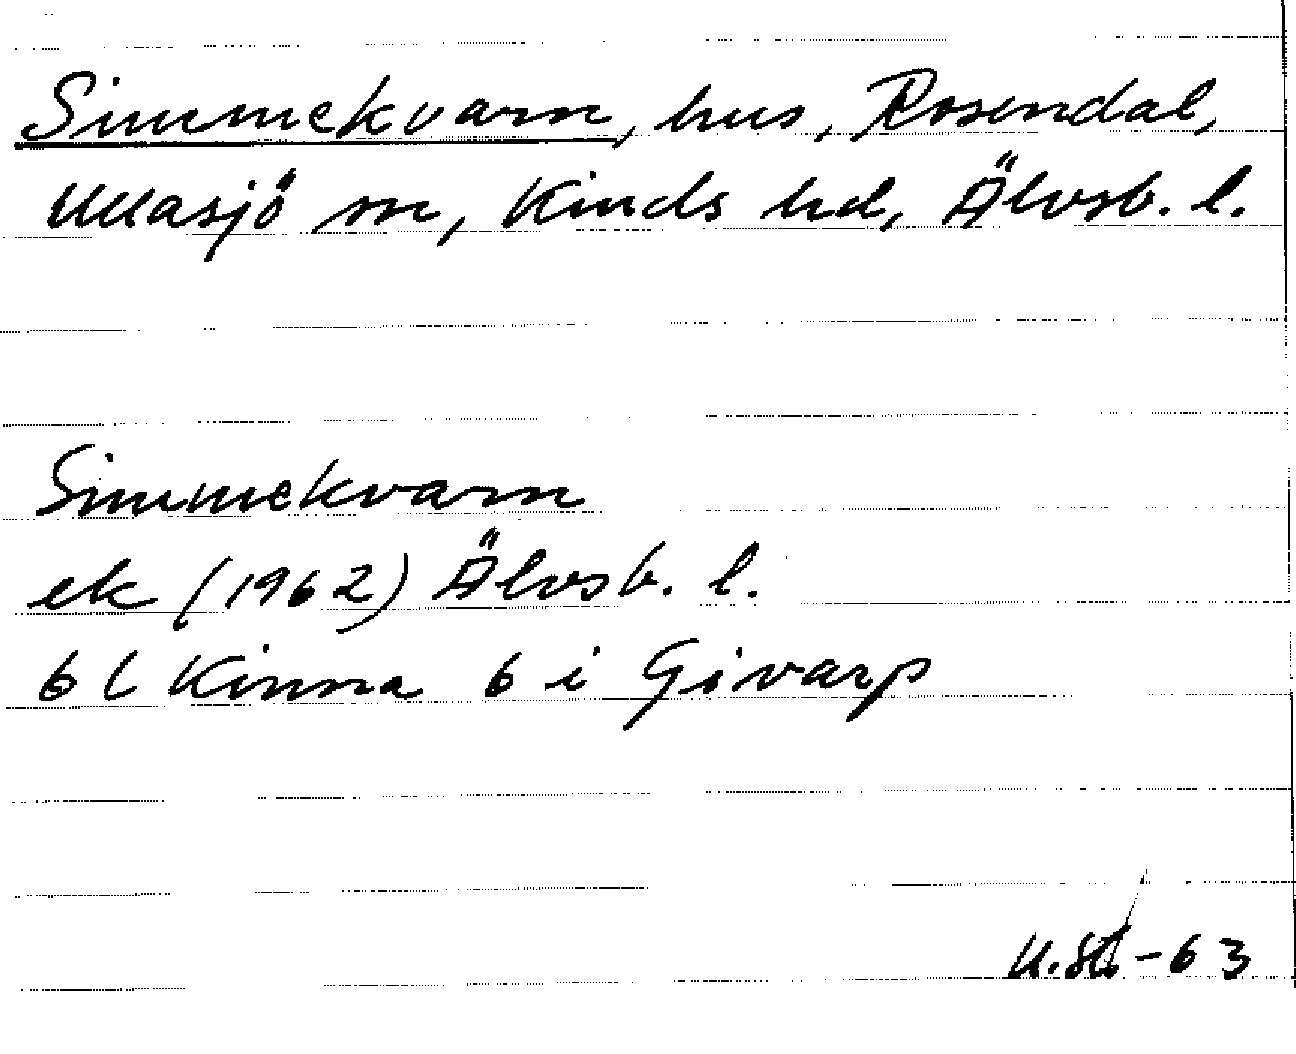 Simmekvarn, hus, Rosendal,
Ullasjö sn, Kinds hd, Älvsb. l.
Simmekvarn
ek (1962) Älvsb. l.
6 l Kinna 6 i Givarp
-63